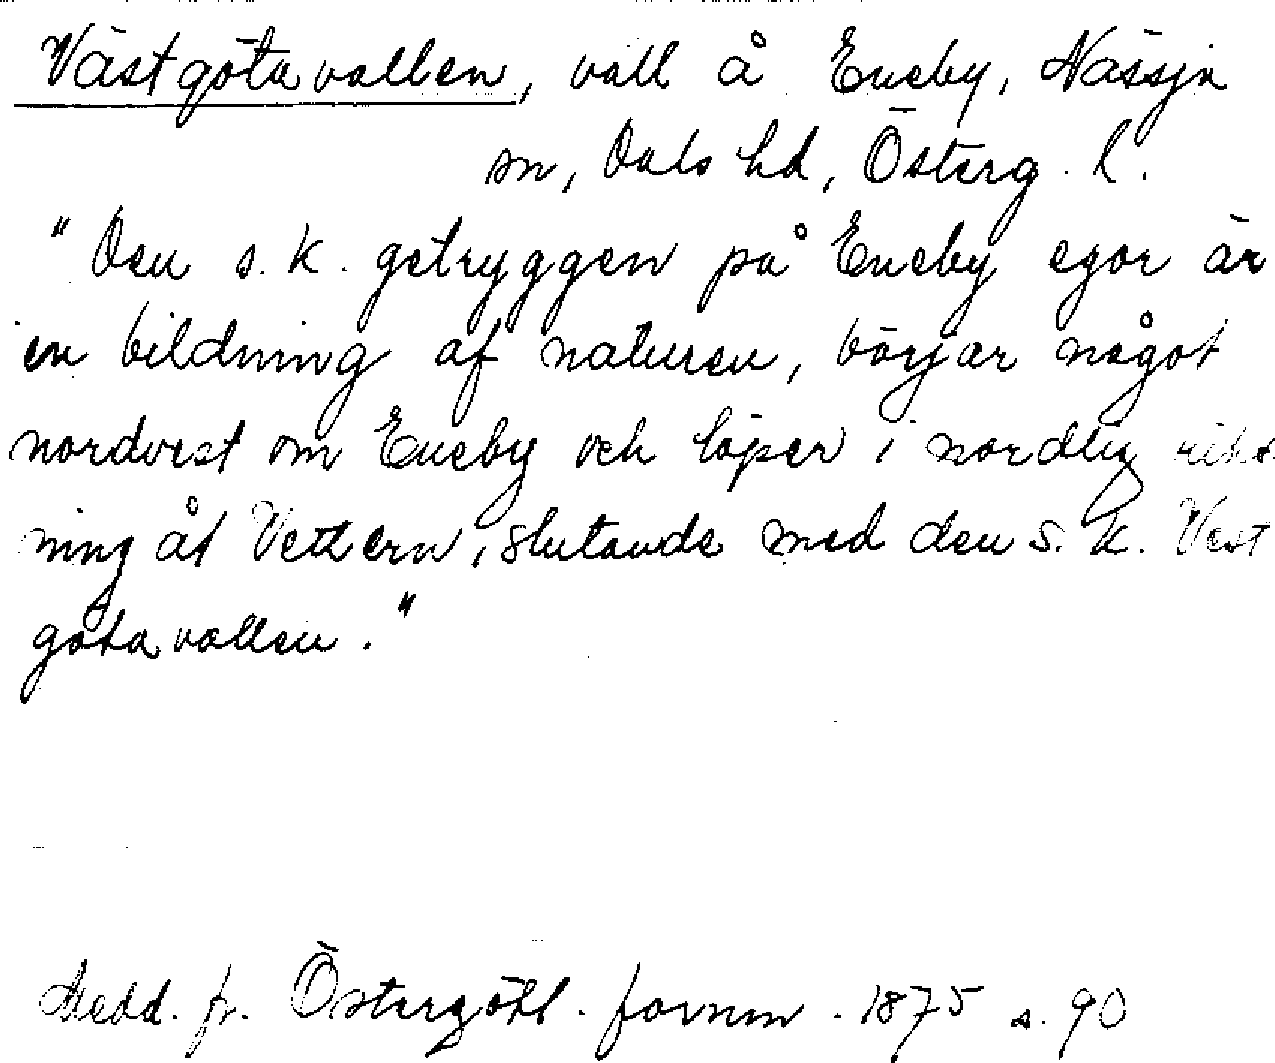 Västgötavallen, vall å Eneby, Nässja
sn, Dals hd, Österg. l.
"Den s. k. getryggen på Eneby egor är
en bildning af naturen, börjar något
nordvest om Eneby och löper i nordlig rikt
ning åt Vettern, slutande med den s. k. Vest
götavallen."
Medd. fr. Östergötl. fornm. 1875 s. 90